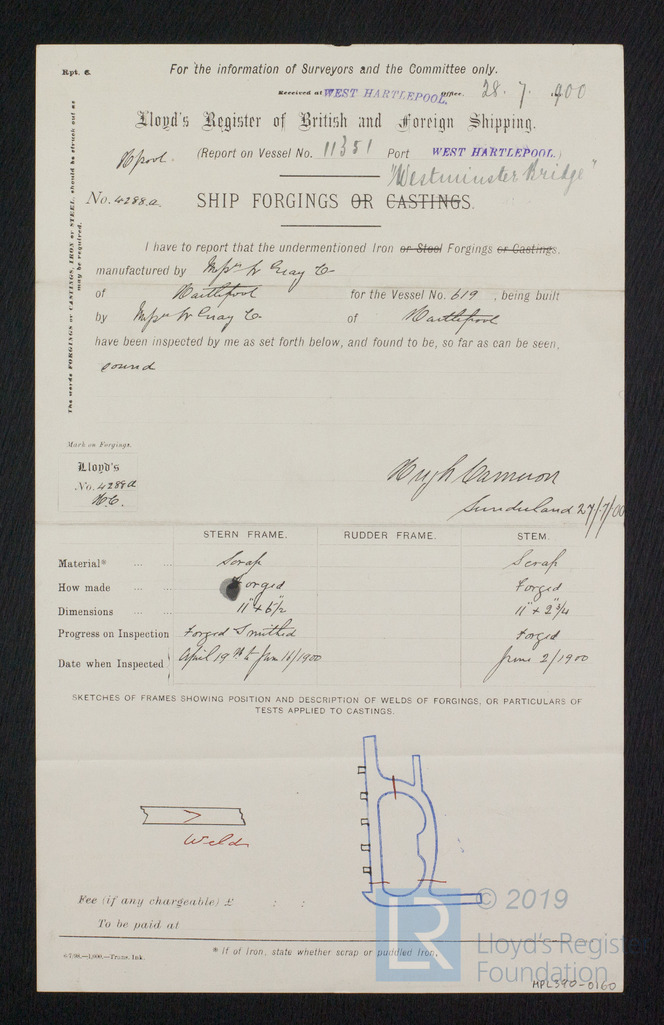 Rpt. 6.
For the information of Surveyors and the Committee only.
Received at WEST HARTLEPOOL. Office. 28. 7. 1900
Lloyd's Register of British and Foreign Shipping.
H'pool. (Report on Vessel No. 11351 Port WEST HARTLEPOOL.)
"Westminster Bridge"
No. 4288.a. SHIP FORGINGS OR CASTINGS.
The words FORGINGS or CASTINGS, IRON or STEEL, should be struck out as
may be required.
I have to report that the undermentioned Iron or Steel Forgings or Castings,
manufactured by Messrs W Gray & Co
of Hartlepool for the Vessel No. 619, being built
by Messrs W Gray & Co of Hartlepool
have been inspected by me as set forth below, and found to be, so far as can be seen,
sound
Mark on Forgings.
Lloyd's
No. 4288a
H.C.
Hugh Cameron
Sunderland 27/7/00
STERN FRAME. RUDDER FRAME. STEM.
Material* Scrap Scrap
How made Forged Forged
Dimensions 11" + 6"1/2 11" + 2"3/4
Progress on Inspection Forged Smithed Forged
Date when Inspected April 19th to Jan 16/1900 June 2/1900
SKETCHES OF FRAMES SHOWING POSITION AND DESCRIPTION OF WELDS OF FORGINGS, OR PARTICULARS OF
TESTS APPLIED TO CASTINGS.
Weld
Fee (if any chargeable) £ : :
To be paid at
* If of Iron, state whether scrap or puddled Iron.
6/7/98.—1,000.—Trans. Ink.
LR
© 2019
Lloyd's Register
Foundation
HPL390-0160